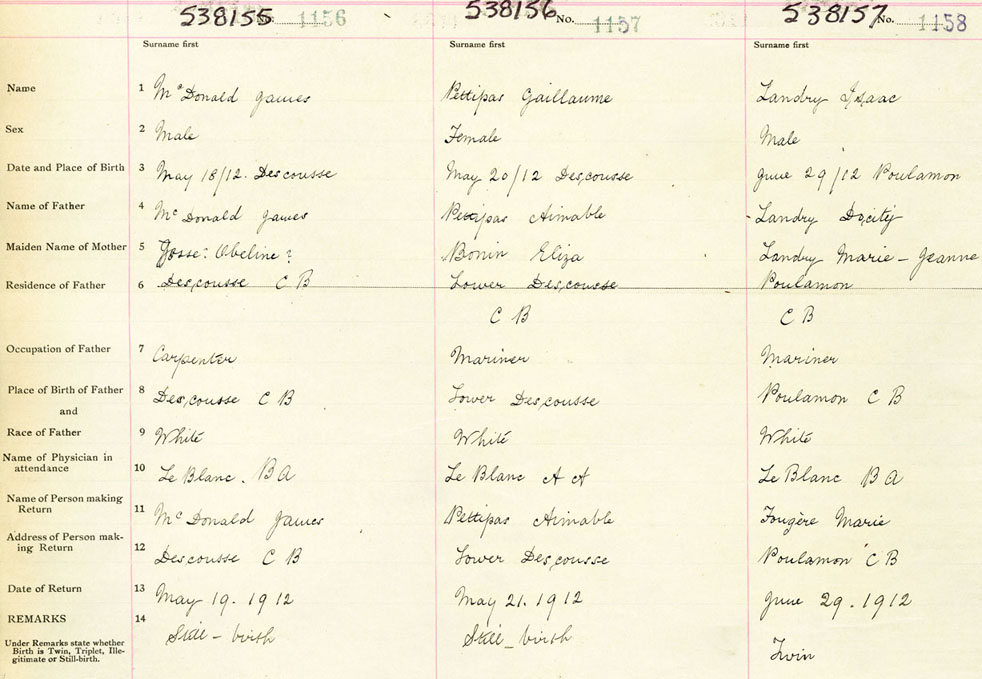 538155 No. 1156 538156 No. 1157 538157 No. 1158
Surname first Surname first Surname first
Name 1 McDonald James Pettipas Gaillaume Landry Isaac
Sex 2 Male Female Male
Date and Place of Birth 3 May 18/12. Descousse May 20/12 Descousse June 29/12 Poulamon
Name of Father 4 McDonald James Pettipas Aimable Landry Docity
Maiden Name of Mother 5 Josse: Obeline? Bonin Eliza Landry Marie-Jeanne
Residence of Father 6 Descousse C B Lower Descousse Poulamon
C B C B
Occupation of Father 7 Carpenter Mariner Mariner
Place of Birth of Father 8 Descousse C B Lower Descousse Poulamon C B
and
Race of Father 9 White White White
Name of Physician in
attendance 10 Le Blanc. B A Le Blanc A A Le Blanc B A
Name of Person making
Return 11 McDonald James Pettipas Aimable Fougère Marie
Address of Person mak-
ing Return 12 Descousse C B Lower Descousse Poulamon C B
Date of Return 13 May 19. 1912 May 21. 1912 June 29. 1912
REMARKS 14 Still-birth Still-birth
Under Remarks state whether
Birth is Twin, Triplet, Ille-
gitimate or Still-birth. Twin